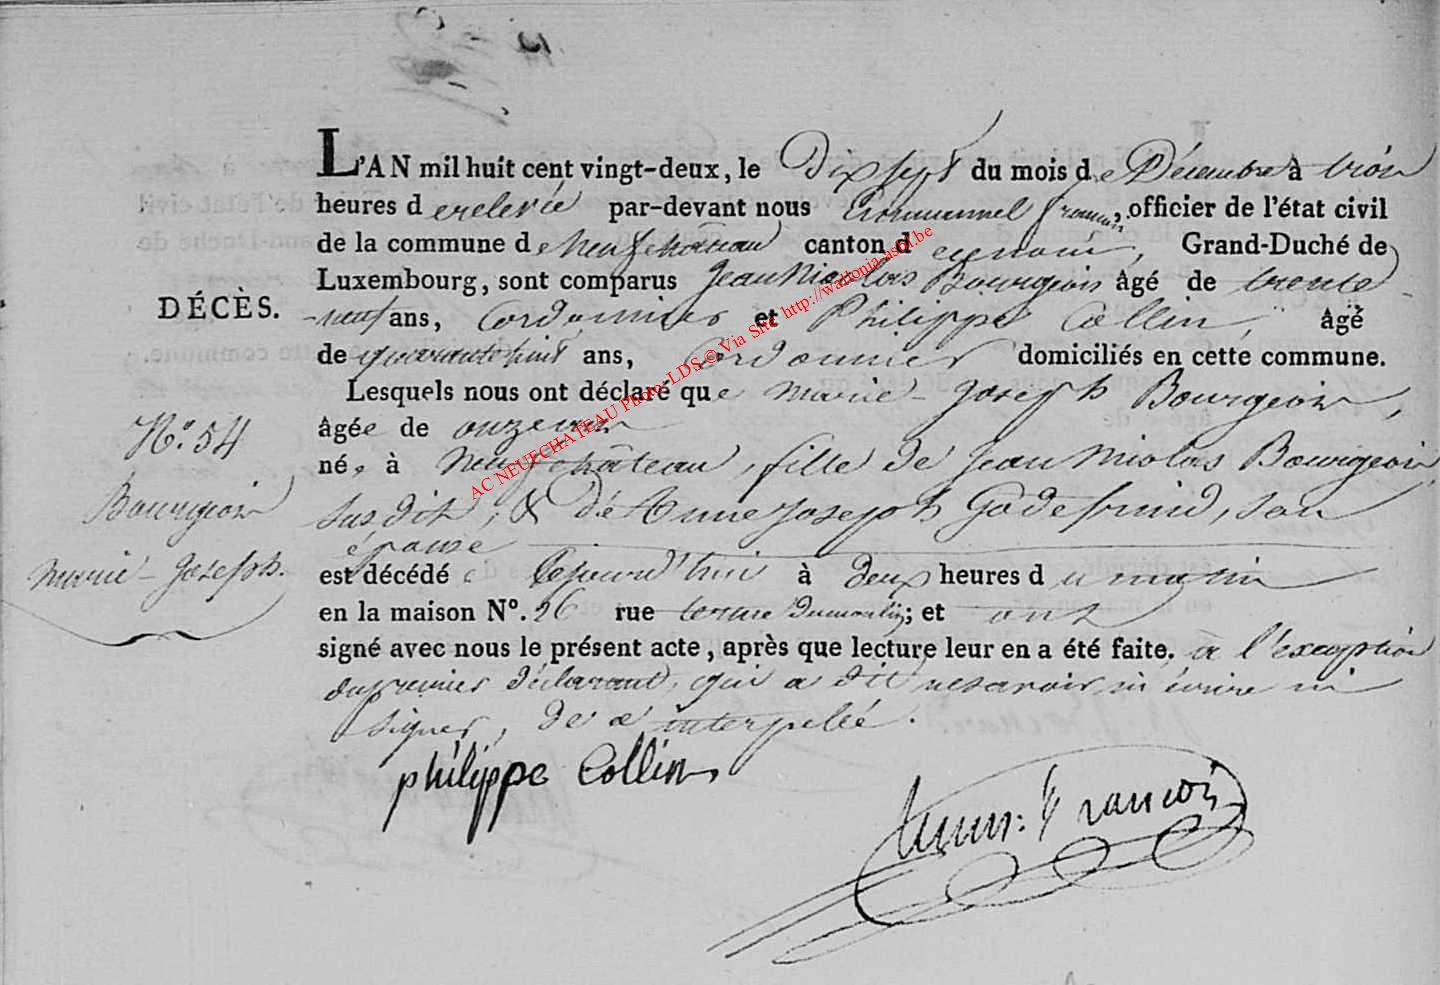 L'AN mil huit cent vingt-deux, le Dix sept du mois de Décembre à trois
heures de relevée par-devant nous Emmanuel François, officier de l'état civil
de la commune de Neufchâteau canton d Grand-Duché de
Luxembourg, sont comparus Jean Nicolas Bourgeois âgé de trente
DÉCÈS.
-neuf ans, Cordonnier et Philippe Collin, âgé
de quarante huit ans, Cordonnier domiciliés en cette commune.
Lesquels nous ont déclaré que Marie-Joseph Bourgeois,
N.° 54
âgée de onze ans
née à Neufchâteau, fille de Jean Nicolas Bourgeois
Bourgeois
susdit, & d'Anne Joseph Godefroid, son
épouse
Marie-Joseph.
est décédée Cejourd'hui à deux heures du matin
en la maison N°. 26 rue terme Dumoulin; et ont
signé avec nous le présent acte, après que lecture leur en a été faite. à l'exception
du premier déclarant, qui a dit ne savoir ni écrire ni
signer, de ce interpellé.
philippe Collin
Emm: François
AC NEUFCHATEAU Photo-LDS © Via Site http://wallonia.asbl.be